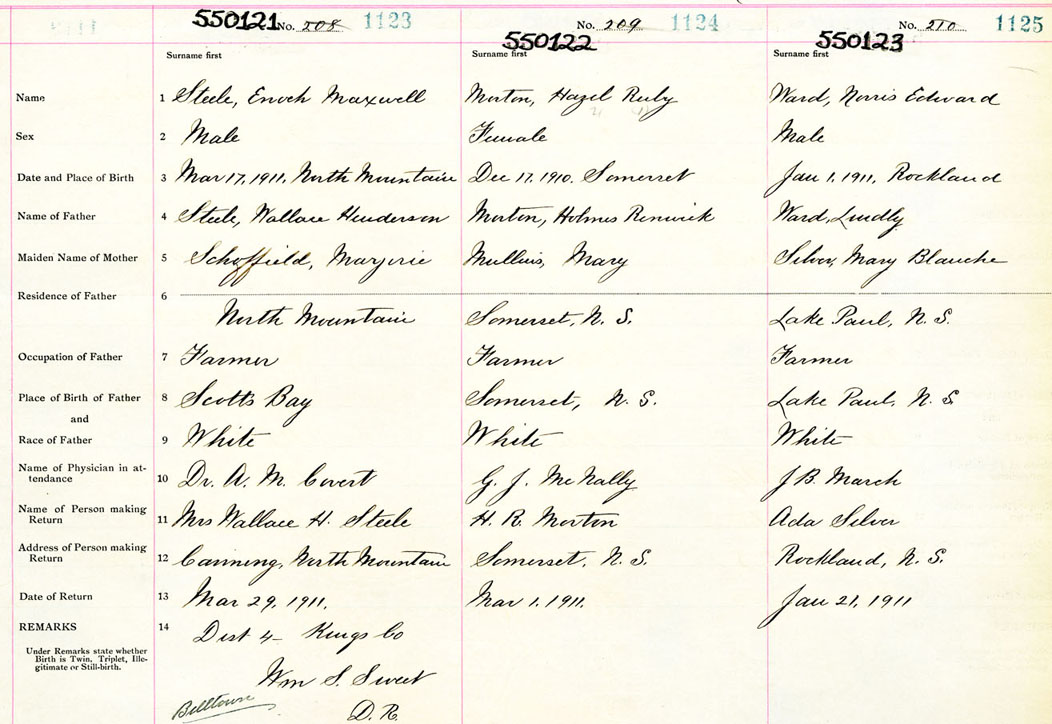 550121 No. 208 1123 No. 209 1124 No. 210 1125
550122 550123
Surname first Surname first Surname first
Name 1 Steele, Enoch Maxwell Morton, Hazel Ruby Ward, Norris Edward
Sex 2 Male Female Male
Date and Place of Birth 3 Mar 17, 1911, North Mountain Dec 17. 1910. Somerset Jan 1, 1911, Rockland
Name of Father 4 Steele, Wallace Henderson Morton, Holmes Renwick Ward, Lindly
Maiden Name of Mother 5 Schoffield, Marjorie Mullins, Mary Silver, Mary Blanche
Residence of Father 6
North Mountain Somerset, N. S. Lake Paul, N. S.
Occupation of Father 7 Farmer Farmer Farmer
Place of Birth of Father 8 Scotts Bay Somerset, N. S. Lake Paul, N. S
and
Race of Father 9 White White White
Name of Physician in at-
tendance 10 Dr. A. M. Covert G. J. McNally J. B. March
Name of Person making
Return 11 Mrs Wallace H. Steele H. R. Morton Ada Silver
Address of Person making
Return 12 Canning, North Mountain Somerset, N. S. Rockland, N. S.
Date of Return 13 Mar 29, 1911. Mar 1. 1911. Jan 21, 1911
REMARKS 14 Dist 4 - Kings Co
Under Remarks state whether
Birth is Twin, Triplet, Ille-
gitimate or Still-birth.
Wm S. Sweet
Belltown D. R.